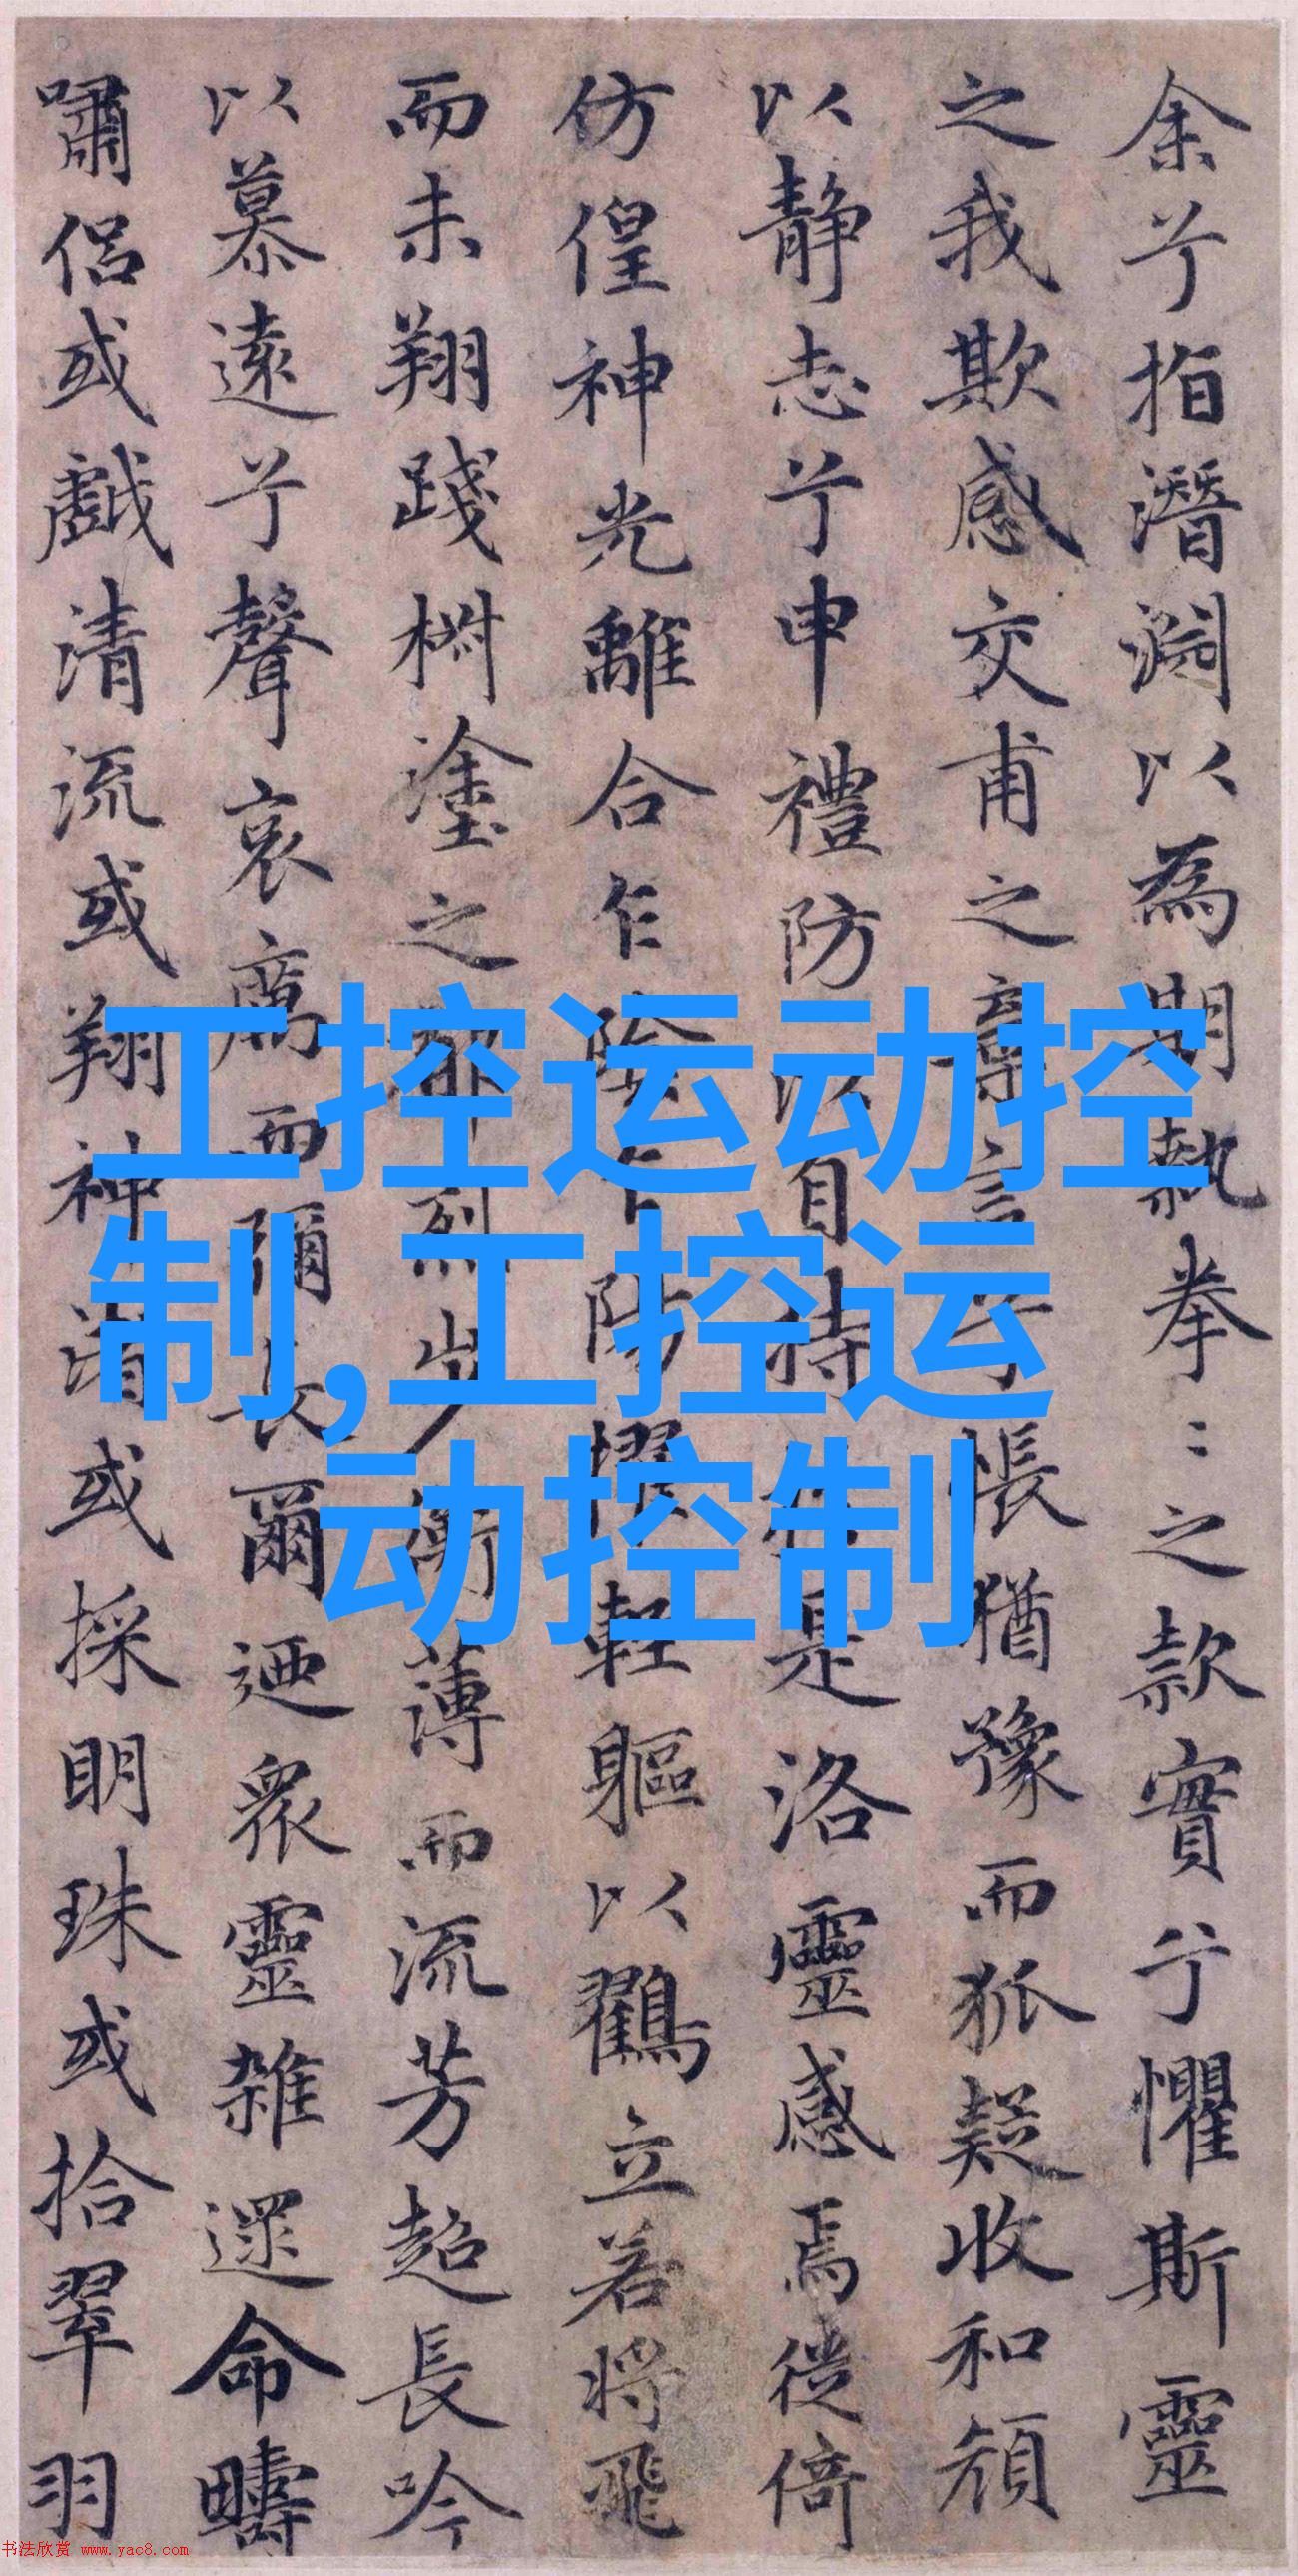 余兮指潛淵以為期執拳〻之款實兮懼斯靈
之我欺感交甫之棄言兮悵猶豫而狐疑收和顏
以靜志兮申禮防以自持於是洛靈感焉徙倚
仿偟神光離合乍陰乍陽輕軀以鸛立若將飛
而未翔踐椒塗之郁烈步蘅薄而流芳超長吟
以慕遠兮聲哀厲而彌長爾迺眾靈雜遝命疇
嘯侶或戲清流或翔神渚或採明珠或拾翠羽
工控运动控
制,工控运
动控制
书法欣赏 www.yac8.com